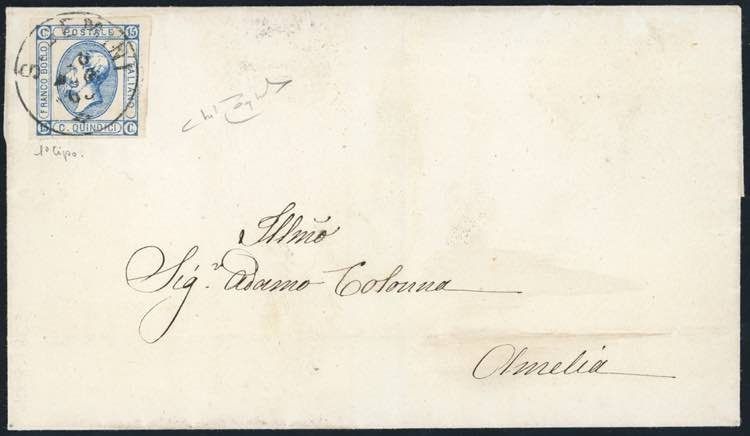 C. POSTALE 15
FRANCO BOLLO
ITALIANO
15 C. QUINDICI C.
63
1° tipo.
Illmõ
Sig.r Adamo Colonna
Amelia